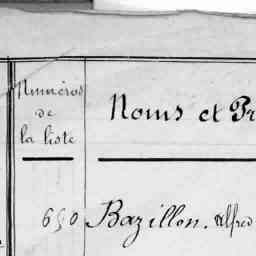 Numéros
de
la liste
Noms et Pr
650 Bazillon. Alfred